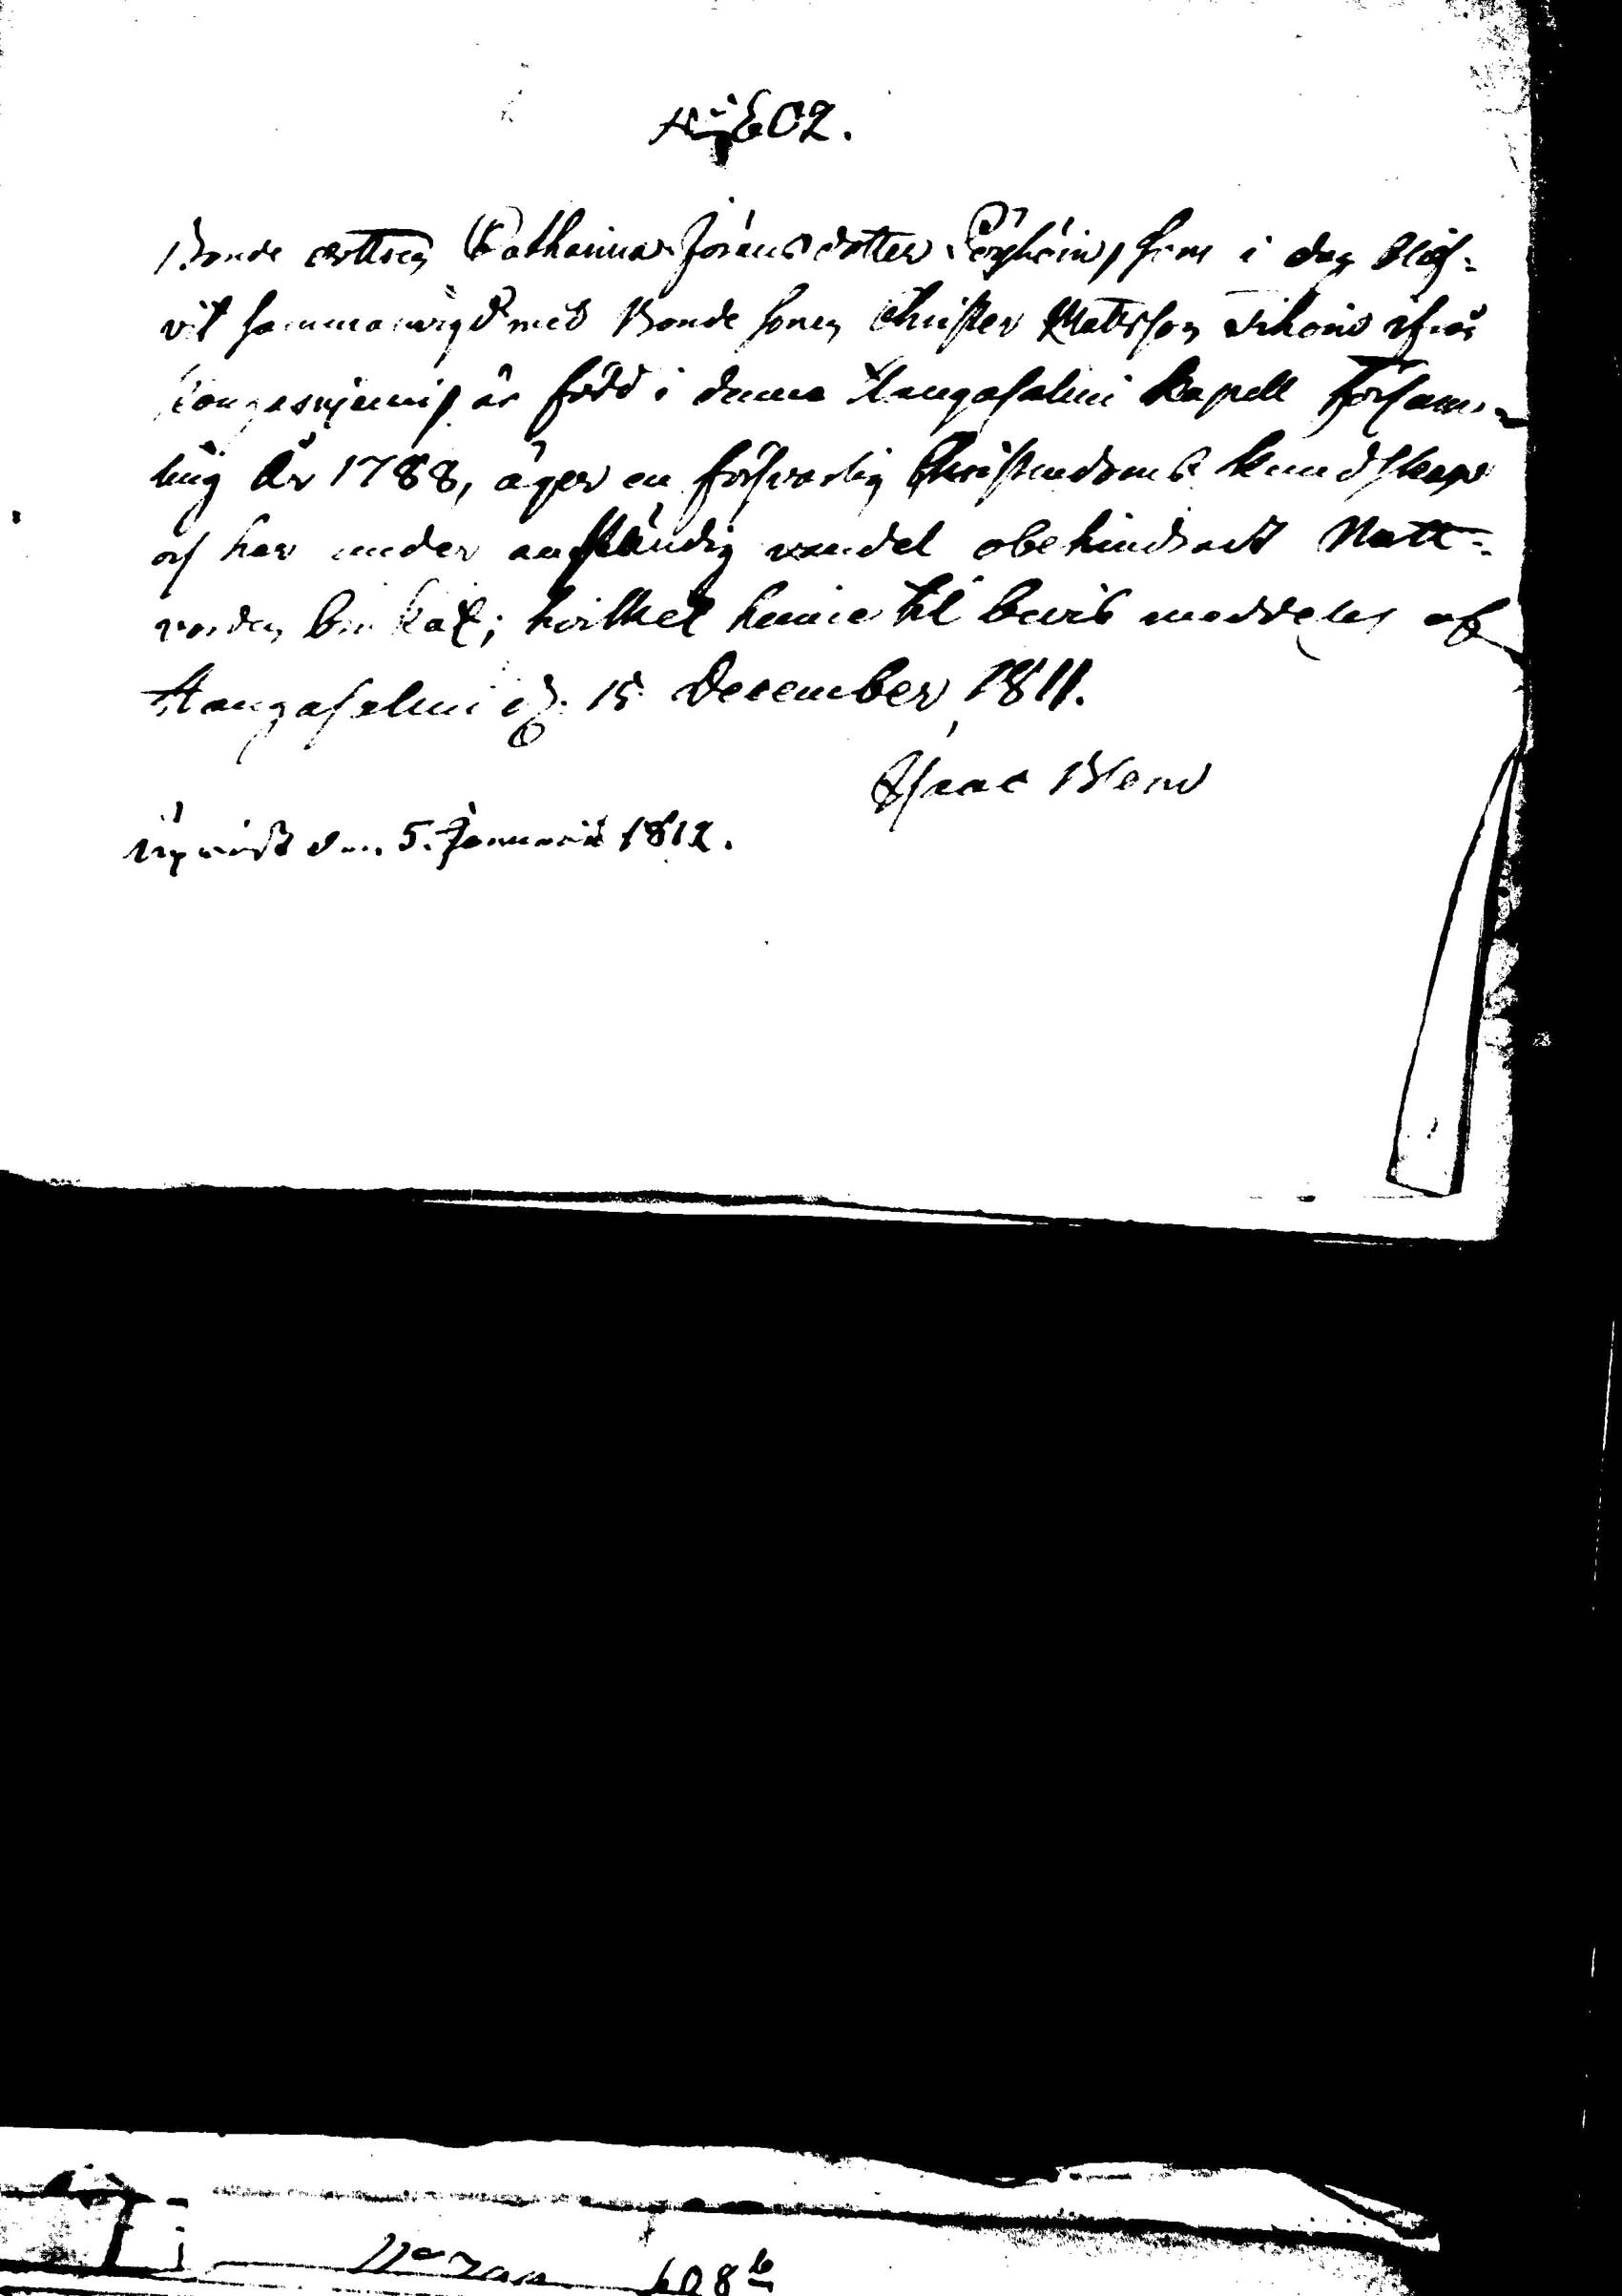 602.
Bonde dottren Catharina Jörens dotter som i dag blif-
vit sammanvigd med Bonde sonen Christer Mattsson Tihoin ifrån
är född i denna Kangasalmi Kapell Försam-
ling År 1788, äger en försvarlig Christendoms kundskap
och har under anständig vandel obehindradt Natt-
varden bivistat; hvilket henne til bevis meddelas af
Kangasalmi d. 15 December 1811.
Isaac
Upvist den 5. Januarii 1812.
608